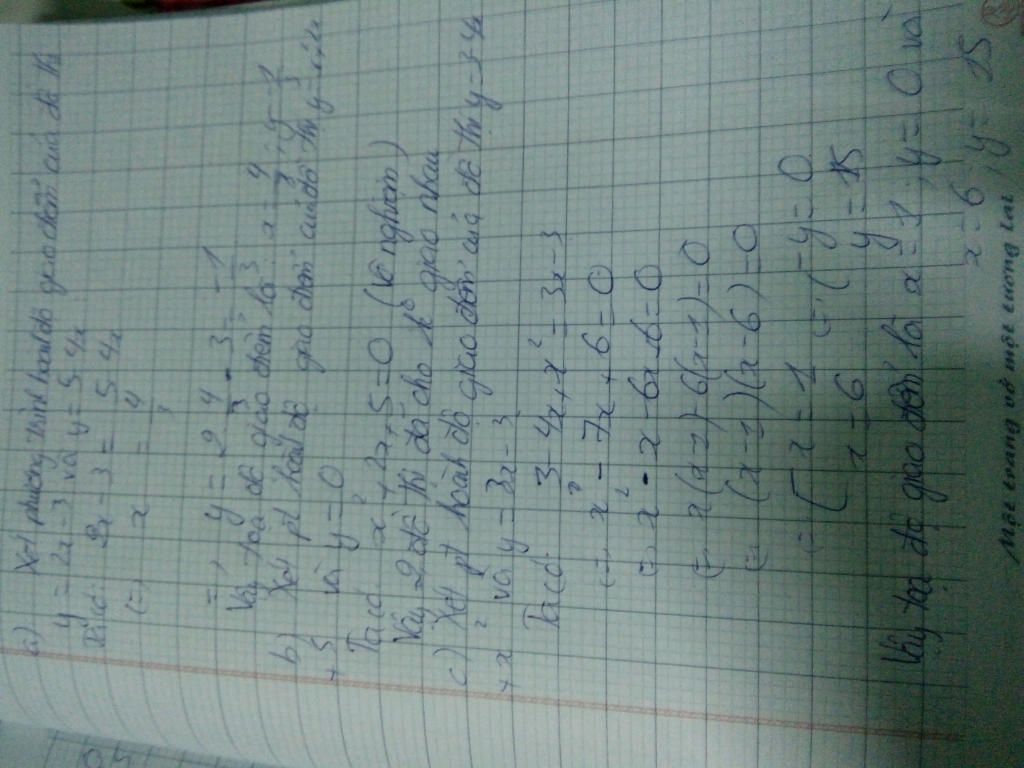 a) Xét phương trình hoành độ giao điểm của đồ thị
y = 2x - 3 và y = 5 - 4x
Ta có: 2x - 3 = 5 - 4x
(=) x = 4/3
=) y = 2 . 4/3 - 3 = -1/3
Vậy tọa độ giao điểm là x = 4/3 ; y = -1/3
b) Xét pt hoành độ giao điểm của đồ thị y =
+ 5 và y = 0
Ta có x² + 2x + 5 = 0 (Vô nghiệm)
Vậy 2 đồ thị đã cho k° giao nhau
c) Xét pt hoành độ giao điểm của đồ thị y = 3 - 4x
+ x² với y = 3x - 3
Ta có 3 - 4x + x² = 3x - 3
(=) x² - 7x + 6 = 0
(=) x² - x - 6x + 6 = 0
(=) x(x - 1) - 6(x - 1) = 0
(=) (x - 1)(x - 6) = 0
(=) [ x = 1 (=) ( y = 0
x = 6 y = 15
Vậy tọa độ giao điểm là x = 1 ; y = 0 và
x = 6 ; y = 15
Một trang vở một tương lai